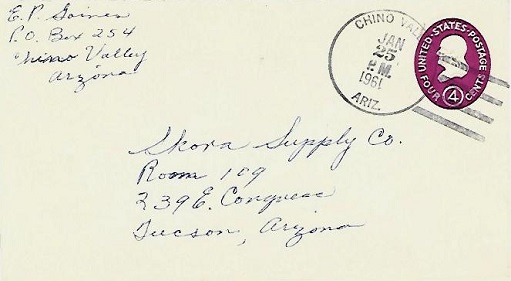 E. P. Gaines
P.O. Box 254
Chino Valley
Arizona
CHINO VALLEY
JAN
25
P.M.
1961
ARIZ.
UNITED·STATES·POSTAGE
FOUR 4 CENTS
Skora Supply Co.
Room 109
239 E. Congress
Tucson, Arizona